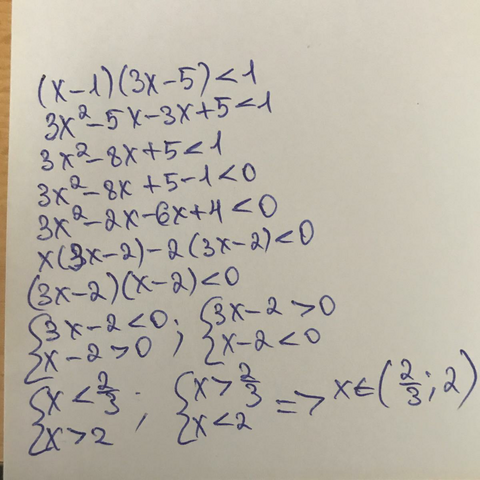 (x-1)(3x-5)<1
3x²-5x-3x+5<1
3x²-8x+5<1
3x²-8x+5-1<0
3x²-2x-6x+4<0
x(3x-2)-2(3x-2)<0
(3x-2)(x-2)<0
{3x-2<0; {3x-2>0
{x-2>0 {x-2<0
{x<2/3; {x>2/3 => x∈(2/3;2)
{x>2 {x<2